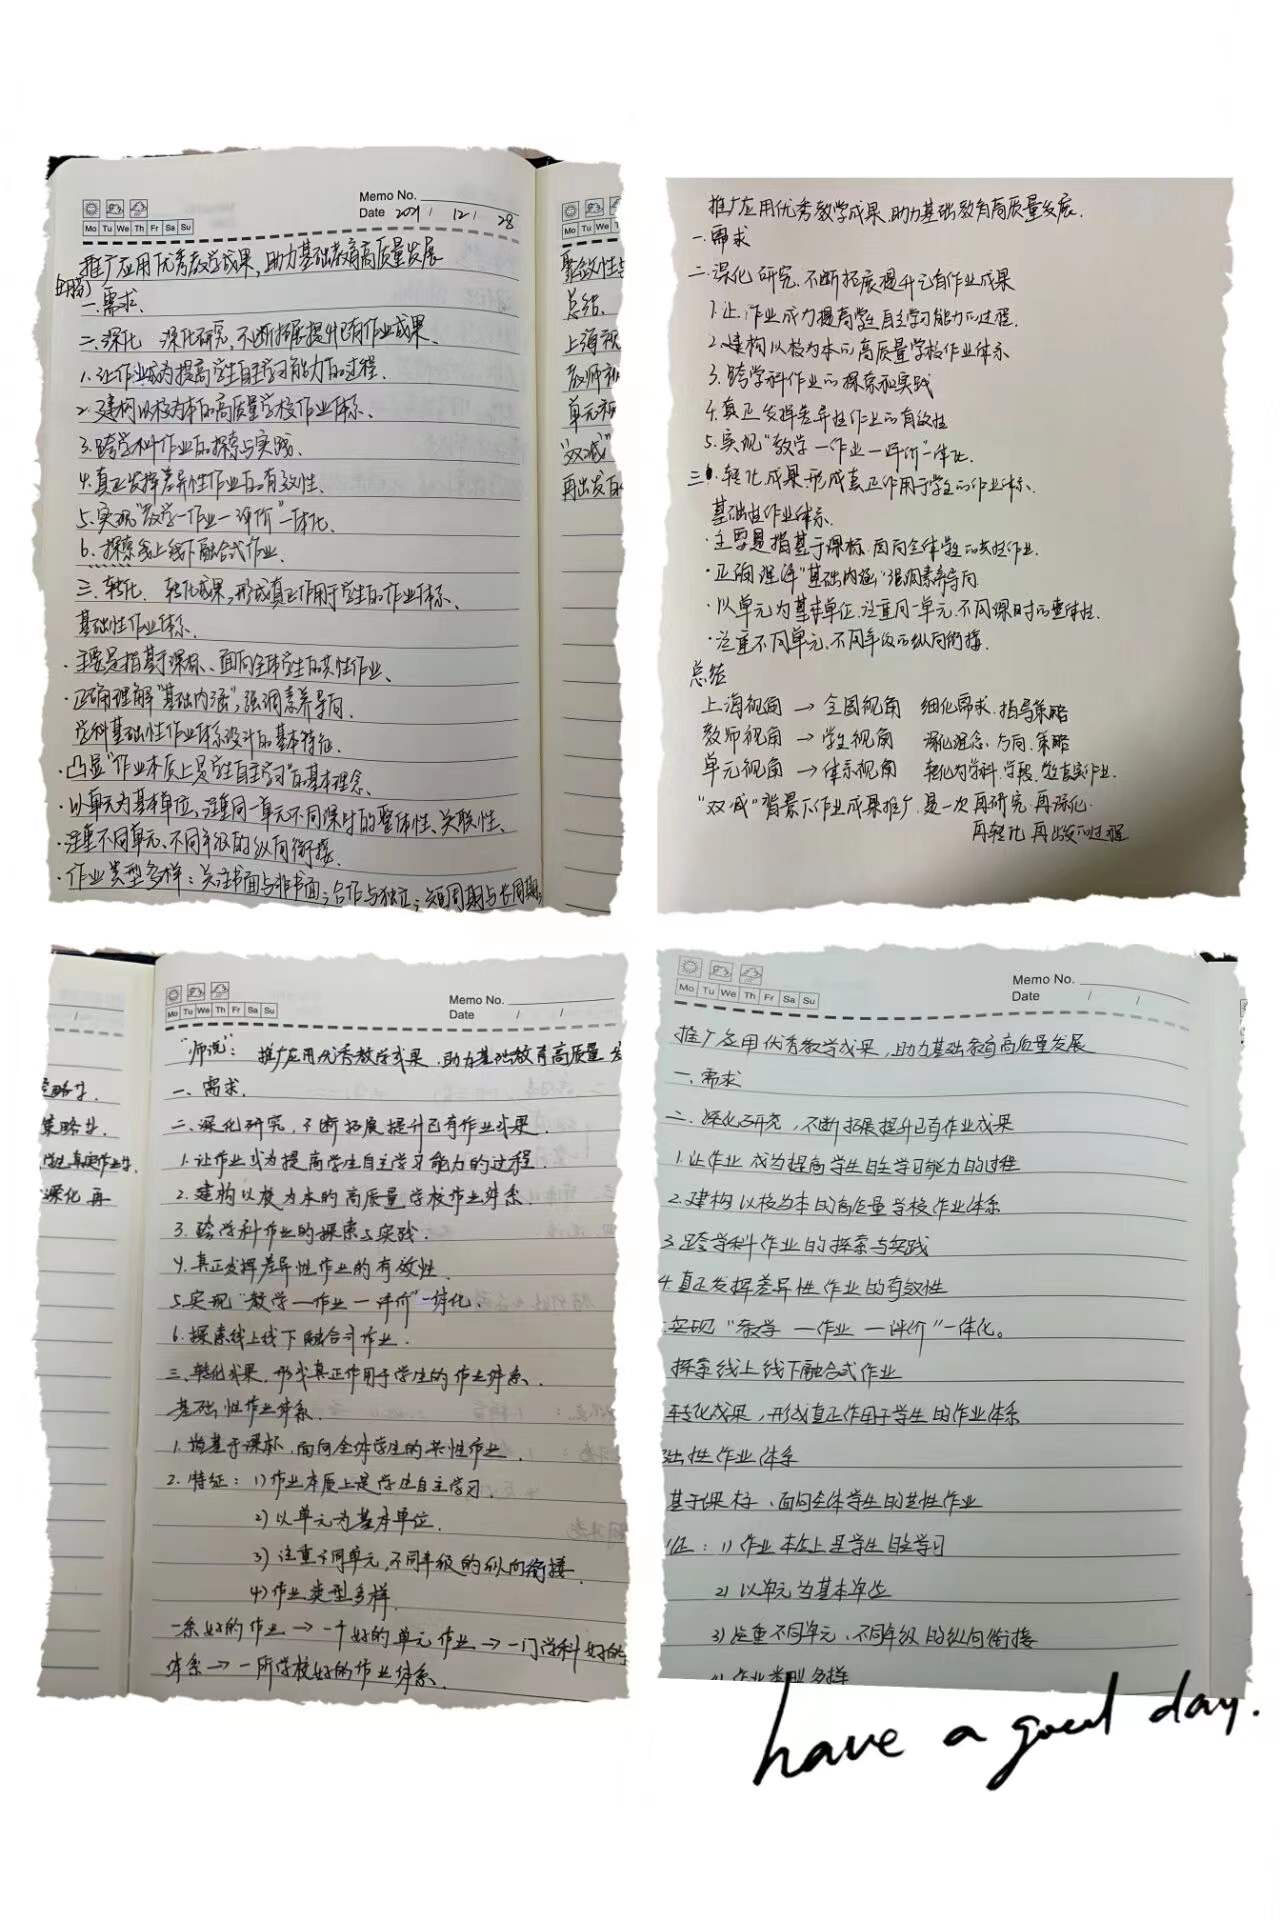 Memo No.
Date 2021 / 12 / 28
Mo Tu We Th Fr Sa Su
推广应用优秀教学成果,助力基础教育高质量发展
一.需求.
二.深化 深化研究,不断拓展提升已有作业成果.
1.让作业成为提高学生自主学习能力的过程.
2.建构以校为本的高质量学校作业体系.
3.跨学科作业的探索与实践.
4.真正发挥差异性作业的有效性.
5.实现"教学一作业一评价"一体化.
6.探索线上线下融合式作业.
三.转化. 转化成果,形成真正作用于学生的作业体系.
基础性作业体系.
·主要是指基于课标、面向全体学生的共性作业.
·正确理解"基础内涵",强调素养导向.
学科基础性作业体系设计的基本特征.
·凸显"作业本质上是学生自主学习"的基本理念.
·以单元为基本单位,注重同一单元不同课时的整体性、关联性.
·注重不同单元、不同年级的纵向衔接.
·作业类型多样:关注书面与非书面;合作与独立;短周期与长周期
总结.
上海视
教师视
单元视
"双减"
再出发的
推广应用优秀教学成果,助力基础教育高质量发展.
一.需求
二.深化研究.不断拓展提升已有作业成果
1.让作业成为提高学生自主学习能力的过程.
2.建构以校为本的高质量学校作业体系
3.跨学科作业的探索和实践
4.真正发挥差异性作业的有效性
5.实现"教学一作业一评价"一体化.
三.转化成果.形成真正作用于学生的作业体系.
基础性作业体系.
·主要是指基于课标.面向全体学生的共性作业.
·正确理解"基础内涵"强调素养导向
·以单元为基本单位.注重同一单元.不同课时的整体性.
·注重不同单元.不同年级的纵向衔接.
总结
上海视角 → 全国视角 细化需求.指导策略
教师视角 → 学生视角 深化理念、方向.策略
单元视角 → 体系视角 转化为学科.学段.学生真实作业.
"双减"背景下作业成果推广.是一次再研究.再深化.
再转化 再出发的过程
策略.
深化再
Memo No.
Date / /
Mo Tu We Th Fr Sa Su
"师说": 推广应用优秀教学成果,助力基础教育高质量发
一、需求.
二.深化研究,不断拓展提升已有作业成果.
1.让作业成为提高学生自主学习能力的过程.
2.建构以校为本的高质量学校作业体系.
3.跨学科作业的探索与实践.
4.真正发挥差异性作业的有效性.
5.实现"教学一作业一评价"一体化.
6.探索线上线下融合式作业.
三.转化成果,形成真正作用于学生的作业体系.
基础性作业体系.
1.指基于课标,面向全体学生的共性作业.
2.特征: 1)作业本质上是学生自主学习.
2)以单元为基本单位.
3)注重不同单元,不同年级的纵向衔接.
4)作业类型多样.
一条好的作业→一个好的单元作业→一门学科好的
体系→一所学校好的作业体系.
Memo No.
Date / /
Mo Tu We Th Fr Sa Su
推广应用优秀教学成果,助力基础教育高质量发展
一.需求
二.深化研究,不断拓展提升已有作业成果
1.让作业成为提高学生自主学习能力的过程
2.建构以校为本的高质量学校作业体系
3.跨学科作业的探索与实践
4.真正发挥差异性作业的有效性
实现"教学一作业一评价"一体化。
探索线上线下融合式作业
转化成果,形成真正作用于学生的作业体系
础性作业体系
基于课标、面向全体学生的共性作业
征: 1)作业本质上是学生自主学习
2)以单元为基本单位
3)注重不同单元、不同年级的纵向衔接
4)作业类型多样
have a good day.